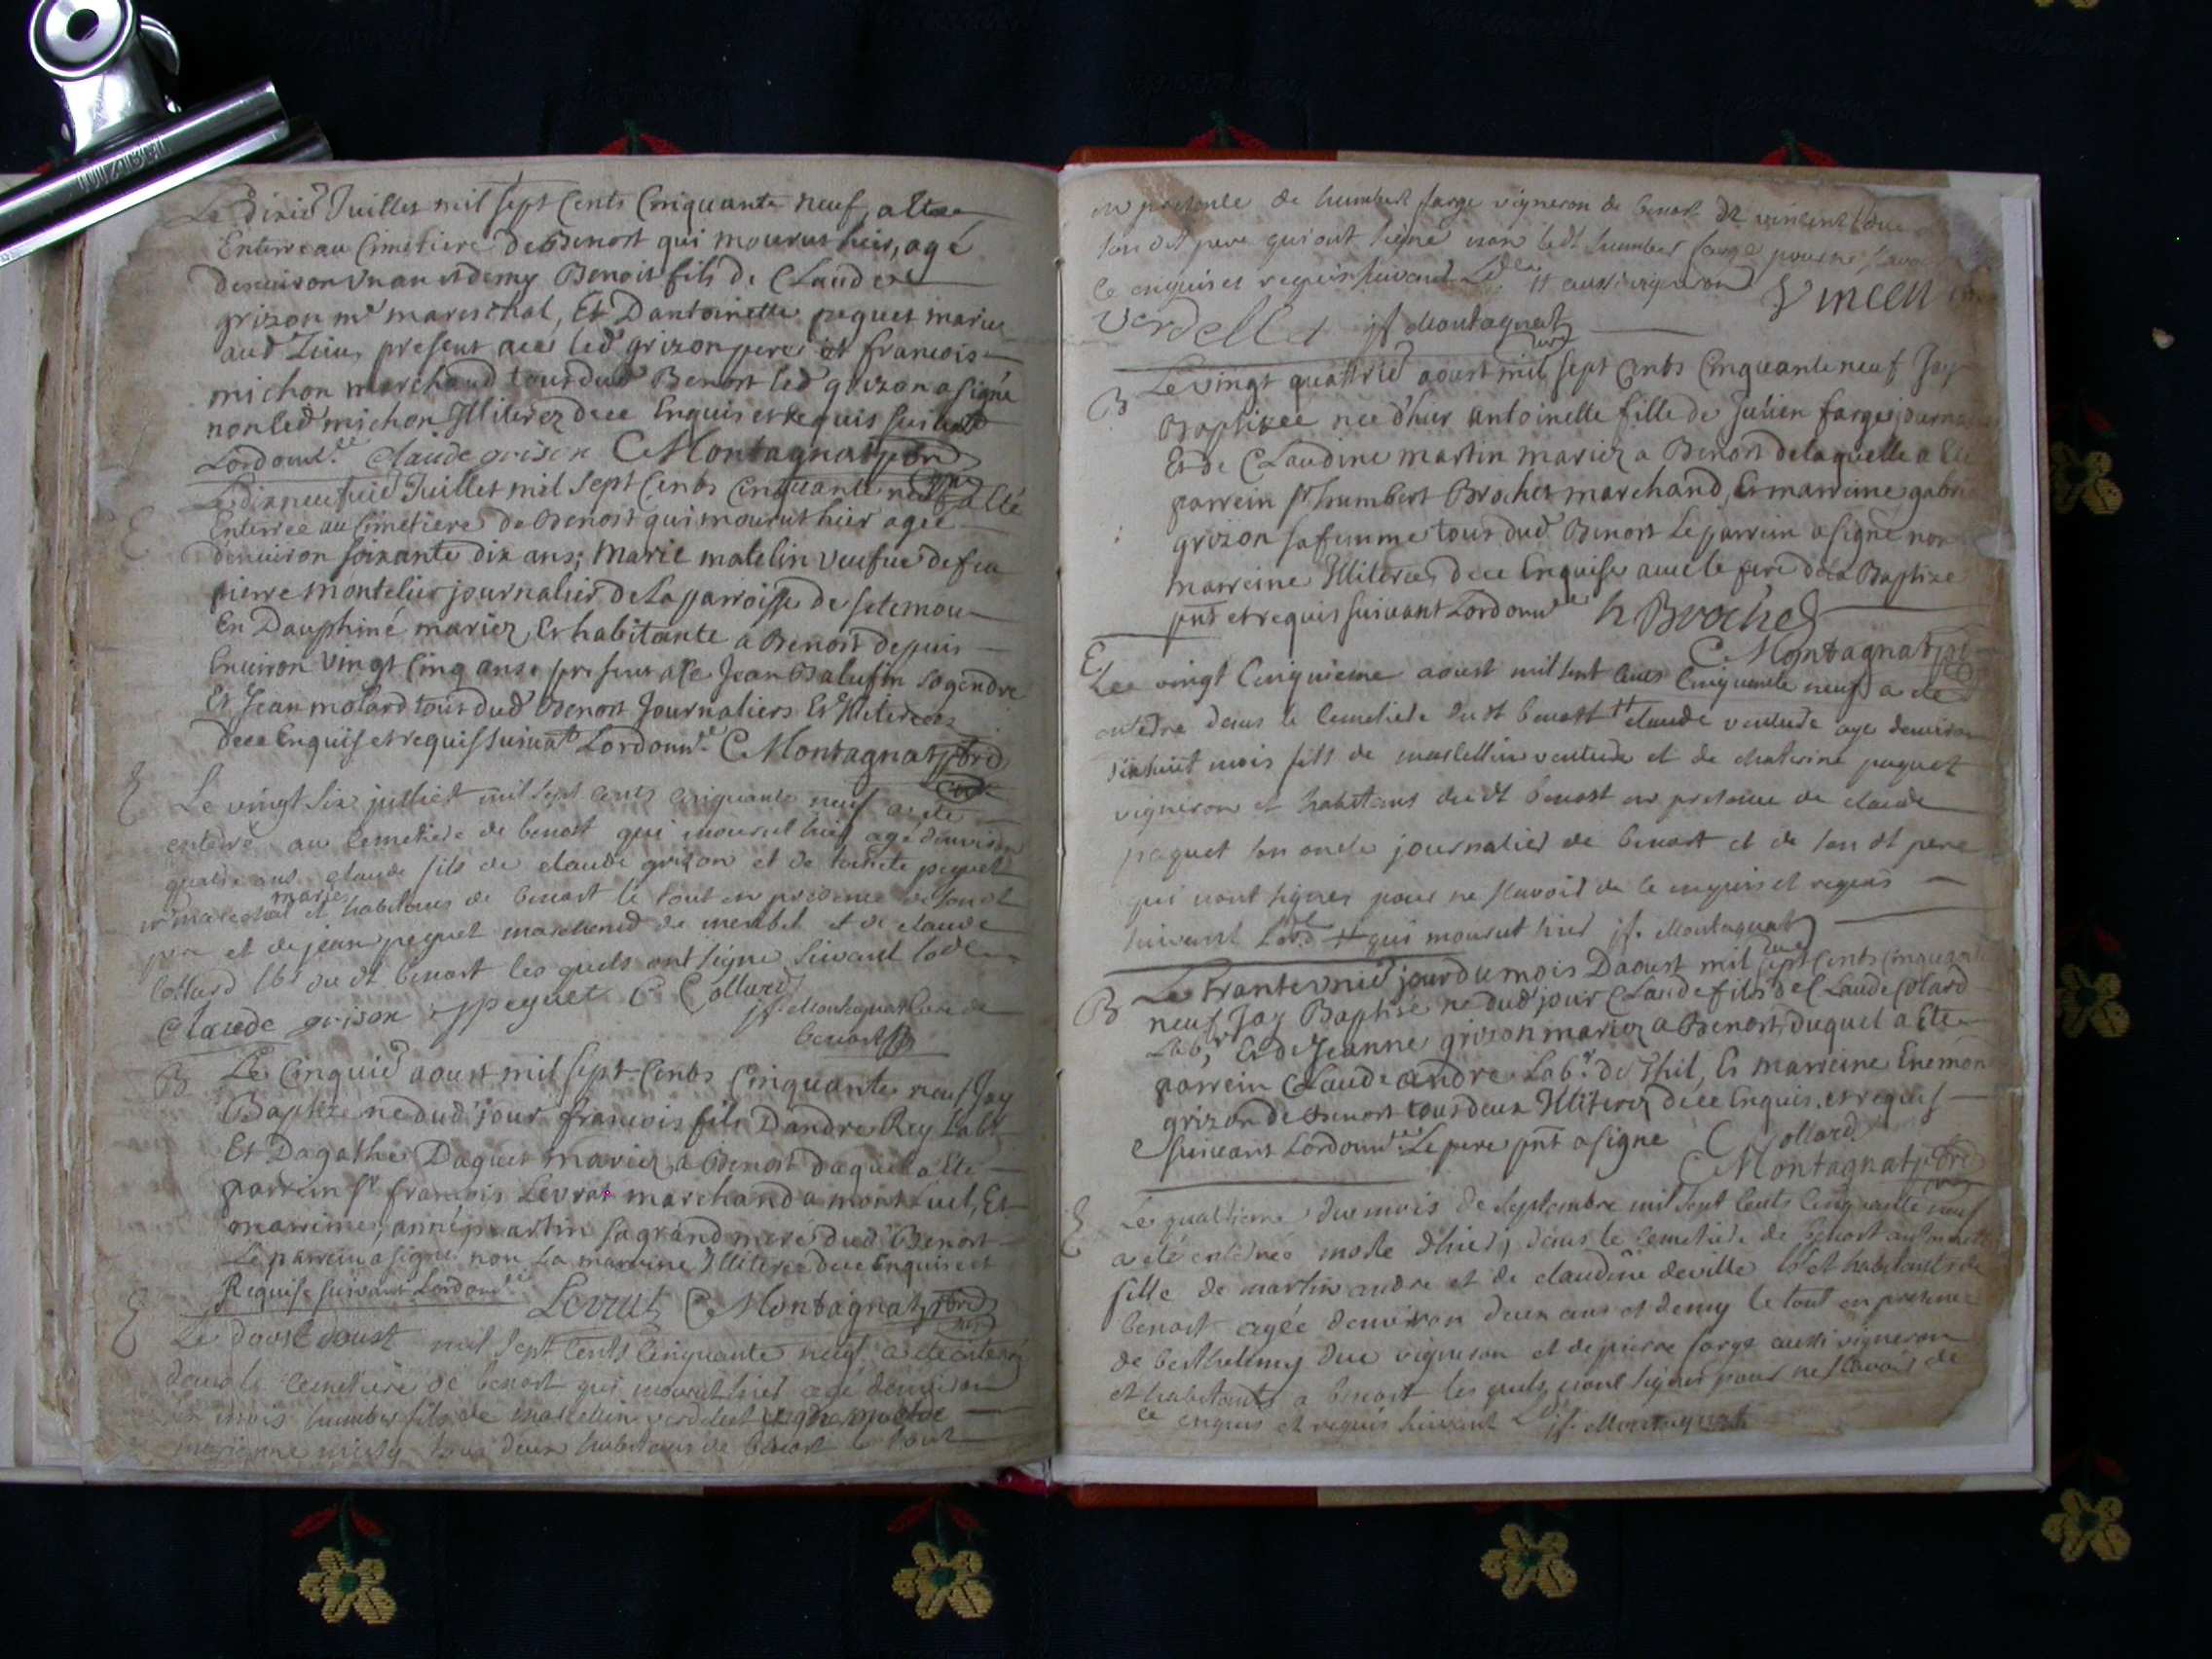 Le dixie Juillet mil sept Cents Cinquante neuf, a Eté
Enterre au Cimetiere de Benost qui mourut hier, agé
denuiron Vn an et demy Benoist fils de Claude
grizon me mareschal, Et Dantoinette peguet mariez
aud Lieu, present ace led grizon pere et francois
michon marchand tous dud Benost led grizon a signé
non led michon Illiterez de ce Enquis et Requis suivant
Lordonnce. Claude grison C Montagnat pbre
Le dixneufuie Juillet mil Sept Cents Cinquante neuf a Eté
Enterrée au Cimetiere de Benost qui mourut hier agée
denuiron soixante dix ans; Marie matelin veufue de feu
pierre montelier journalier de La parroisse de
En Dauphiné mariez, Et habitante a Benost depuis
Enuiron Vingt Cinq ans, presens a ce Jean Balufin so gendre
Et Jean molard tous dud Benost Journaliers Et Illiterez
de ce Enquis et requis suiuat Lordonnce. C Montagnat pbre
curé
E Le vingt six julliet mil sept cents cinquante neuf a ete
enterré au cemetiere de benost qui mourut hier agé denviron
quatre ans claude fils de claude grizon et de peguet
mr marechal mariés et habitans de benost le tout en presence de son dt
pere et de jean peguet marchand de et de claude
Collard lbr du dt benost les quels ont signe suivant lode
Claude grison jpeguet C Collard
jf. Montagnat cure de
benost
B Le Cinquie aoust mil sept Cents Cinquante neuf Jay
Baptizé ne dud jour francois fils Dandré Rey Labr
Et Dagathe Daguet mariez a Benost duquel a Ete
parrein sr francois Levrat marchand a montluel, Et
marreine, anne martin sa grand mere dud Benost
Le parrein a signé non La marreine Illiterée de ce Enquise et
Requise suivant Lordonce Levrat C Montagnat pbre
curé
E Le douse doust mil sept Cents Cinquante neuf a ete enterré
dans le Cemetiere de benost qui mourut hier agé denviron
six mois humber fils de marcellin verdelet et de
marianne tous deux habitans de benost le tout
en presence de humbert farge vigneron de benost et vincent
son dt pere qui ont signé non ledt humber farge pour ne scavoir
ce enquis et requis suivant Lde aussi vigneron Vincen
Verdellet jf Montagnat
curé
B Le vingt quattrie aoust mil sept Cents Cinquante neuf Jay
Baptizée née d'hier antoinette fille de Julien farge journalier
Et de Claudine martin mariez a Benost de laquelle a Eté
parrein sr humbert Brochet marchand, Et marreine gabri
grizon sa femme tous dud Benost Le parrein a signé non
marreine Illiterée de ce Enquise auec le pere de la Baptizee
pnt et requis suivant Lordonnce h Brochet
C Montagnat pbre
E Le vingt Cinquieme aoust mil sept Cents Cinquante neuf a eté
enterre dans le Cemetiere du dt benost # claude venture age denviron
dixhuit mois fils de marcellin venture et de chaterine paquet
vigneron et habitans du dt benost en presence de claude
paquet son oncle journalier de benost et de son dt pere
qui nont signés pour ne scavoir de ce enquis et requis
suivant Lord # qui mourut hier jf. Montagnat
curé
B Le trante vnie jour du mois Daoust mil sept Cents Cinquante
neuf Jay Baptisé ne dud jour Claude fils de Claude Colard
Labr, Et de Jeanne grizon mariez a Benost, duquel a Eté
parrein Claude andré Labr. de Thil, Et marreine Enemon
grizon de Benost tous deux Illiterez de ce Enquis, et requis
suiuant Lordonnce. Le pere pnt a signe C Collard
C Montagnat pbre
curé
E Le quattrieme du mois de septembre mil sept Cents Cinquante neuf
a eté enterrée morte d'hier, dans le Cemetiere de benost
fille de martin andre et de claudine deville lbr et habitants de
benost agée denviron deux ans et demy le tout en presence
de berthelemy Duc vigneron et de pierre farge aussi vigneron
et habitants a benost les quels nont signés pour ne scavoir de
ce enquis et requis suivant Ld jf. Montagnat